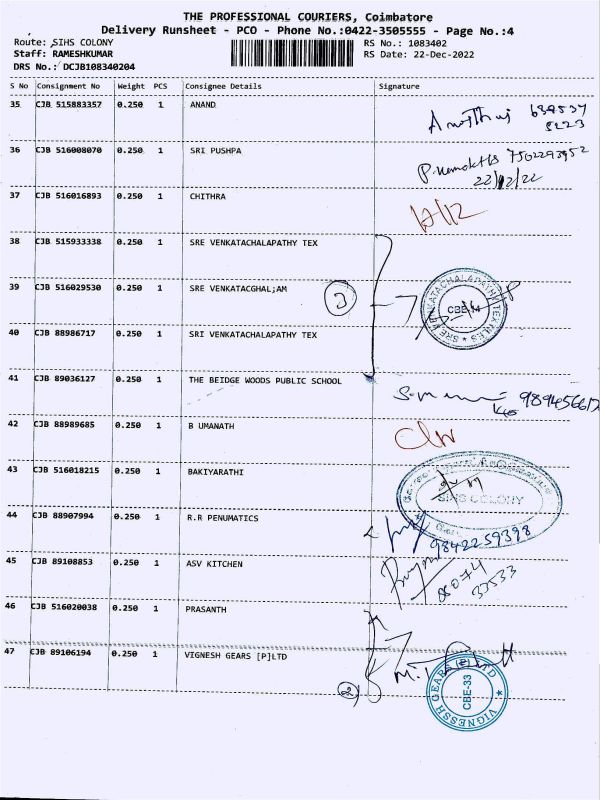 THE PROFESSIONAL COURIERS, Coimbatore
Delivery Runsheet - PCO - Phone No.:0422-3505555 - Page No.:4
Route: SIHS COLONY
Staff: RAMESHKUMAR
DRS No.: DCJB108340204
RS No.: 1083402
RS Date: 22-Dec-2022
S No Consignment No Weight PCS Consignee Details Signature
35 CJB 515883357 0.250 1 ANAND
36 CJB 516008070 0.250 1 SRI PUSHPA
22/12/22
37 CJB 516016893 0.250 1 CHITHRA
38 CJB 515933338 0.250 1 SRE VENKATACHALAPATHY TEX
39 CJB 516029530 0.250 1 SRE VENKATACGHAL;AM
3
SRE VENKATACHALAPATHY TEXTILES
CBE-14
40 CJB 88986717 0.250 1 SRI VENKATACHALAPATHY TEX
41 CJB 89036127 0.250 1 THE BEIDGE WOODS PUBLIC SCHOOL
42 CJB 88989685 0.250 1 B UMANATH
43 CJB 516018215 0.250 1 BAKIYARATHI
SIHS COLONY
44 CJB 88907994 0.250 1 R.R PENUMATICS
9842259398
45 CJB 89108853 0.250 1 ASV KITCHEN
46 CJB 516020038 0.250 1 PRASANTH
47 CJB 89106194 0.250 1 VIGNESH GEARS [P]LTD
2
VIGNESSH GEARS (P) LTD
CBE-33